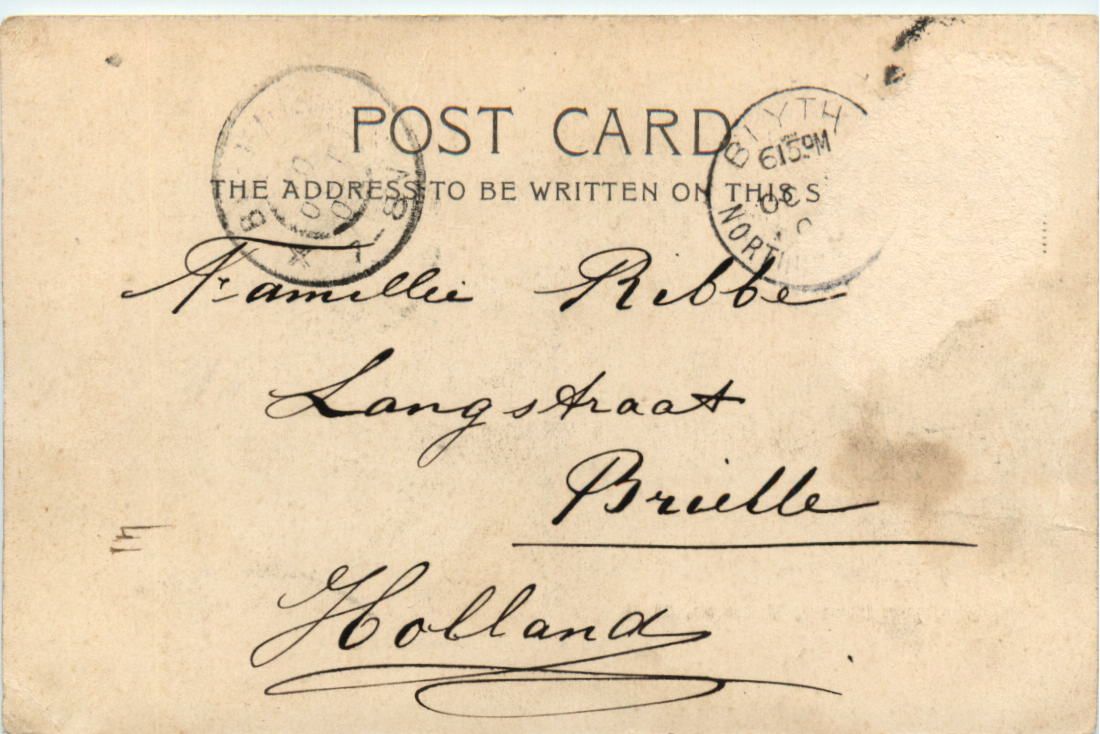 POST CARD
THE ADDRESS TO BE WRITTEN ON THIS S
BLYTH
615PM
OC
NORTH
Famillie Ribbe
Langstraat
Brielle
Holland